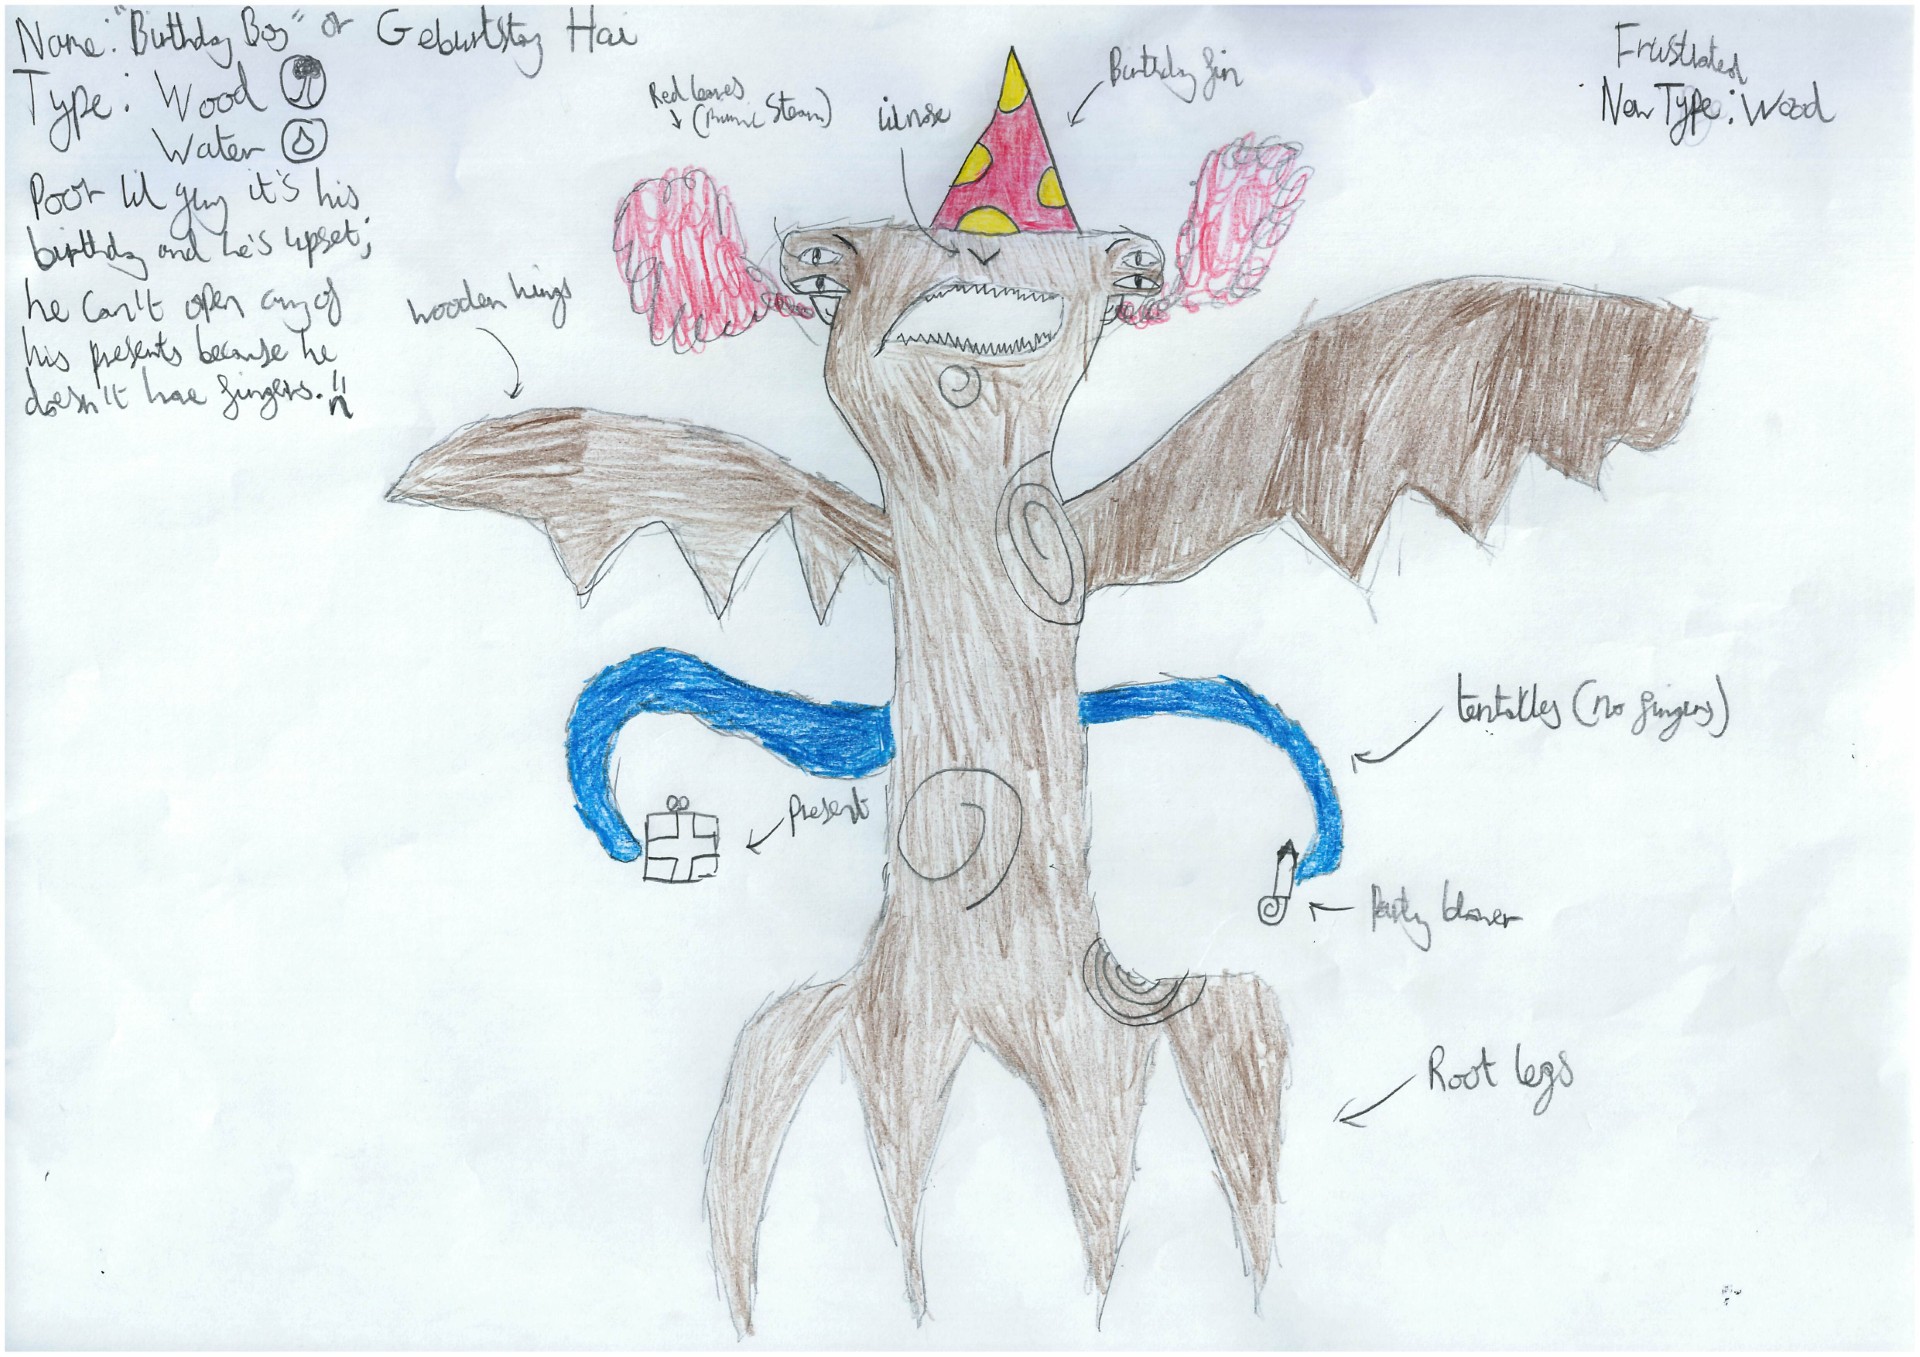 Name: "Birthday Boy" or Geburtstag Hai
Type: Wood
Water
Poor lil guy it's his
birthday and he's upset;
he can't open any of
his presents because he
doesn't have fingers.
Frustrated
New Type: Wood
Red leaves
Steam)
lil nose
Birthday fin
wooden wings
tentalles (no fingers)
present
Party blower
Root legs